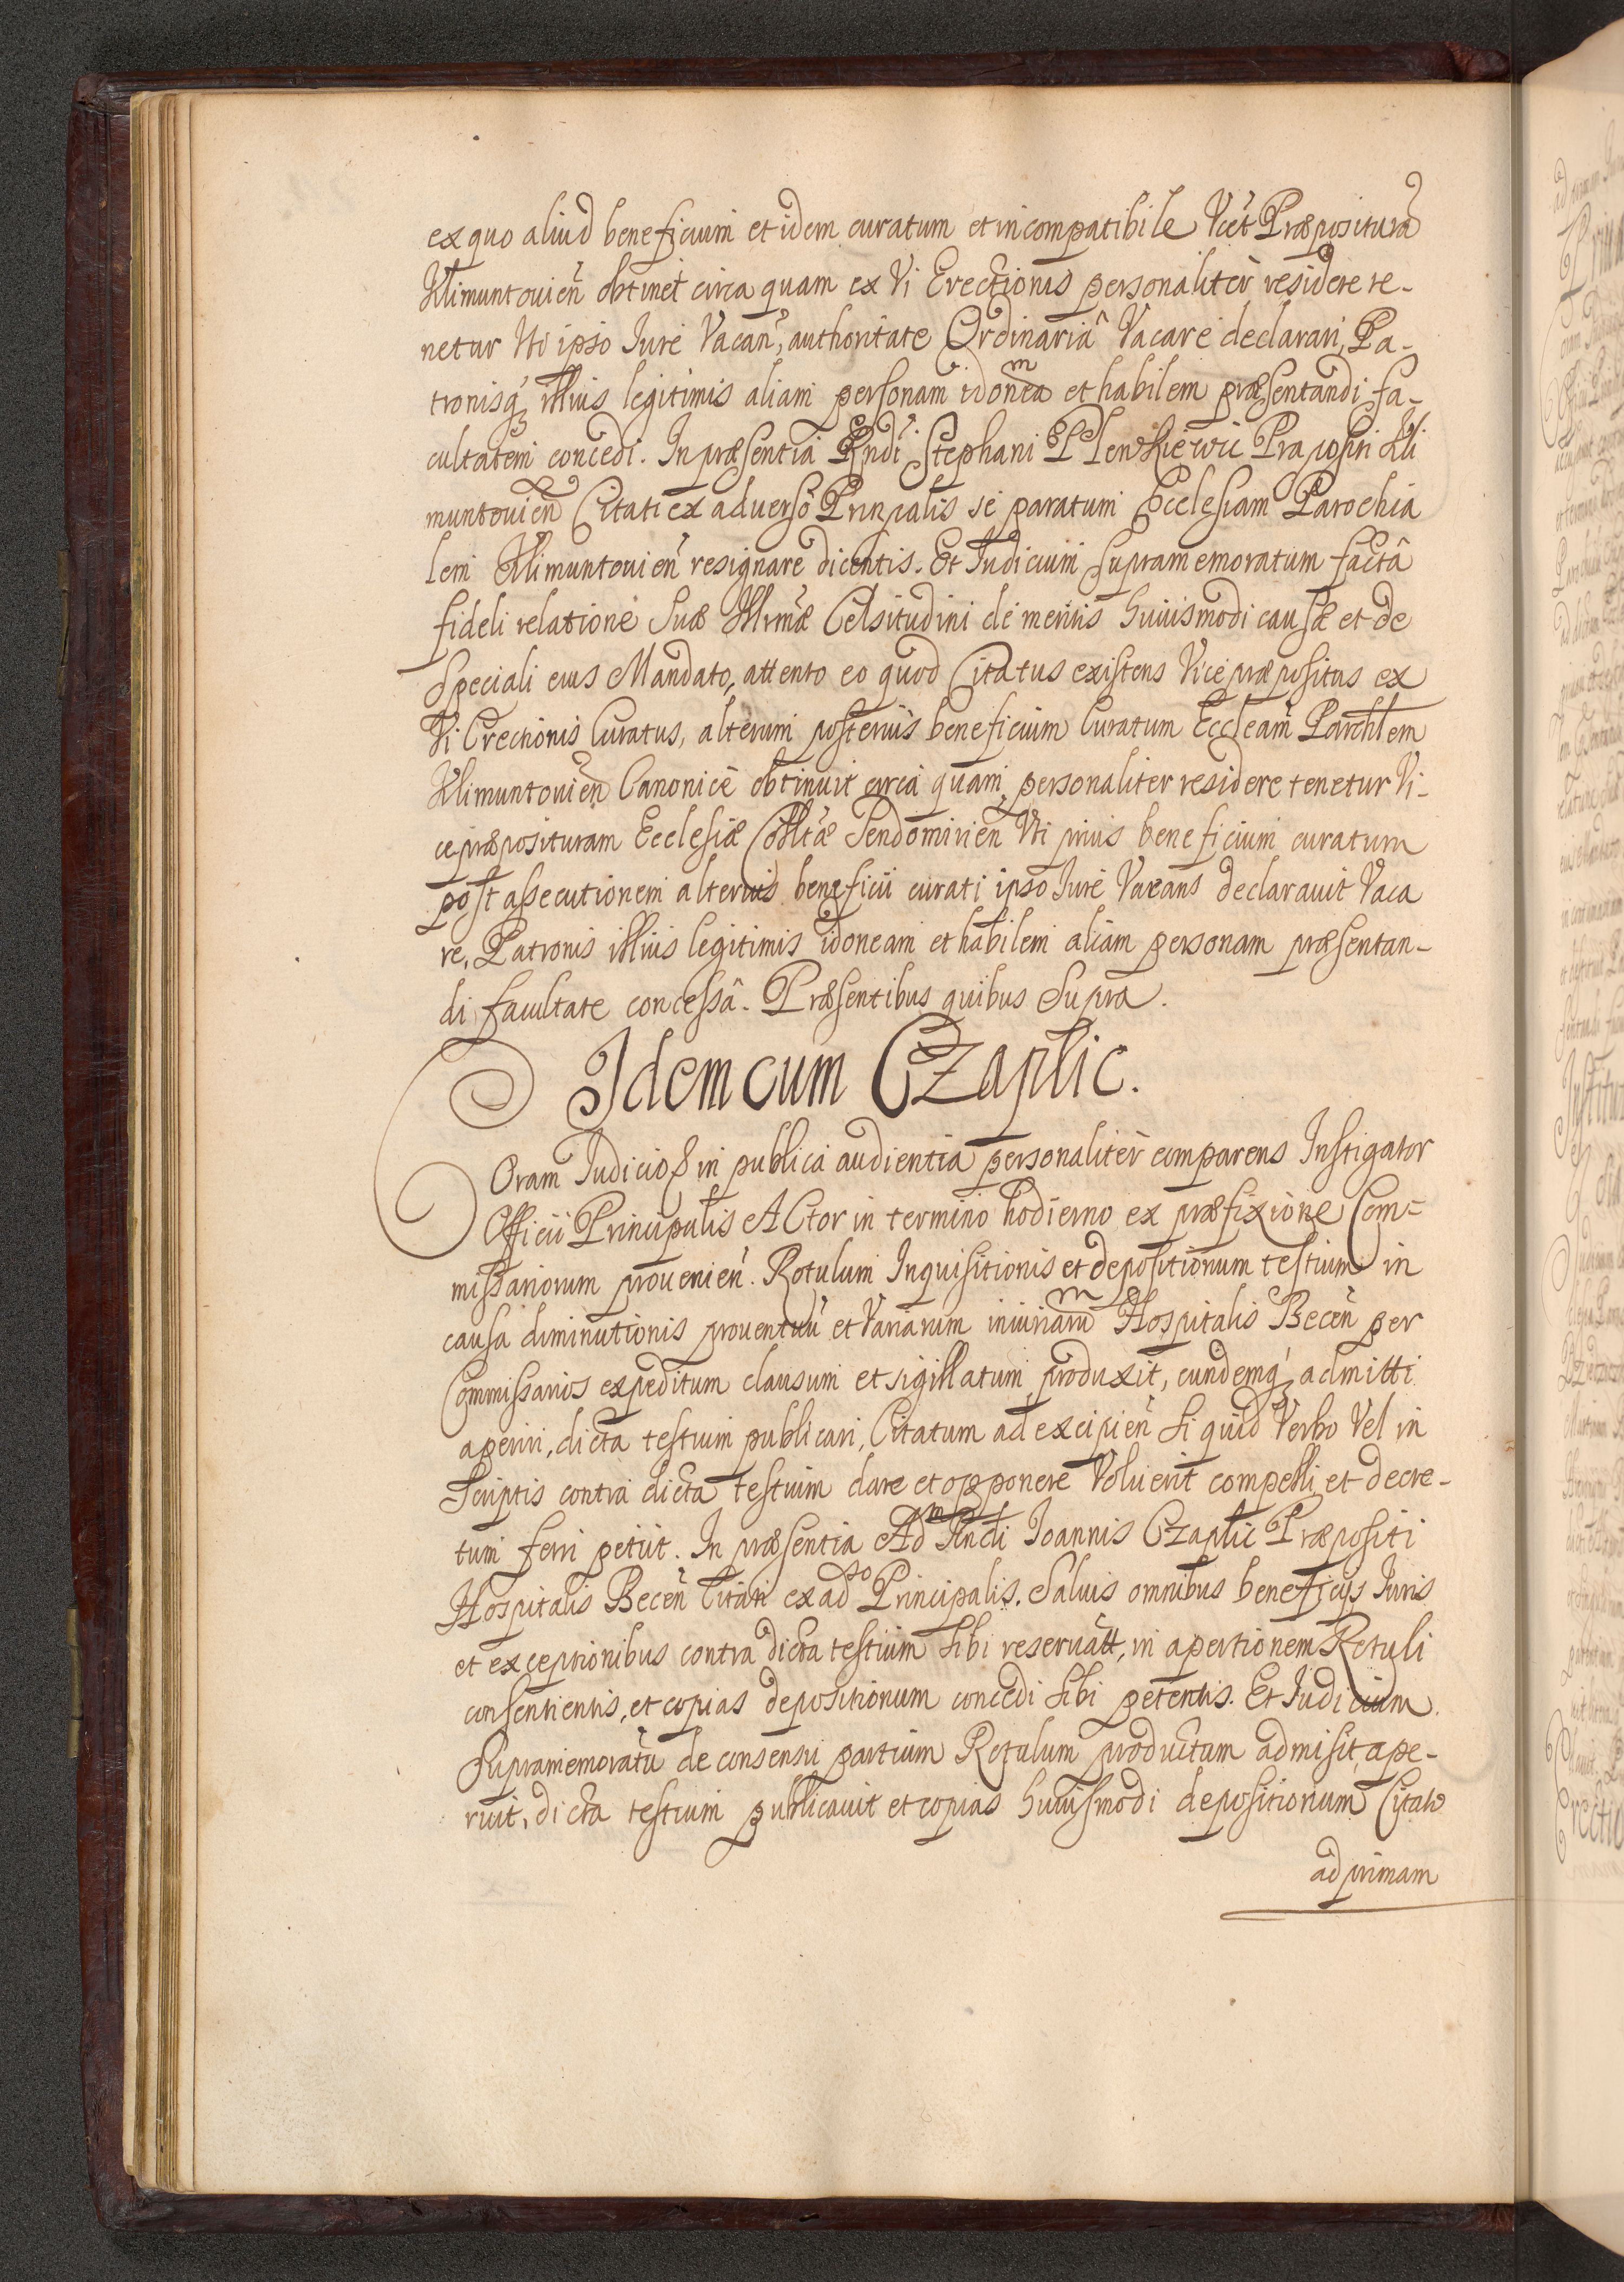 ex quo aliud beneficium et idem curatum et incompatibile Vcet Præposituram
Klimuntouien̄ obtinet circa quam ex Vi Erectionis personaliter residere te-
netur Uti ipso Iure Vacan̄, authoritate Ordinariâ Vacare declarari, Pa-
tronisq́ illius legitimis aliam personam idoneaͫ et habilem præsentandi fa-
cultatem concedi. In præsentia Rndi Stephani Præpositi Kli
muntouien̄ Citati ex aduerso Prinpalis se paratum Ecclesiam Parochia
lem Klimuntouien̄ resignare dicentis. Et Iudicium Supramemoratum factâ
fideli relatione Suæ Illrmæ Celsitudini de meritis huiusmodi causæ et de
Speciali eius Mandato, attento eo quod Citatus existens Vicepræpositus ex
Vi Erectionis Curatus, alterum posterius beneficium Curatum Eccleam Parchlem
Klimuntouien̄ Canonicè obtinuit circa quam personaliter residere tenetur Vi-
cepræposituram Ecclesiæ Colltæ Sendomirien̄ Uti prius beneficium curatum
post assecutionem alterius beneficii curati ipso Iure Vacans declarauit Vaca
re, Patronis illius legitimis idoneam et habilem aliam personam præsentan-
di facultate concessâ. Præsentibus quibus Supra.
Idem cum Czaplic.
Coram Iudicio & in publica audientia personaliter comparens Instigator
Officii Principalis ACtor in termino hodierno ex præfixione Com=
missariorum prouenien̄. Rotulum Inquisitionis et depositionum testium in
causa diminutionis prouentuū et Variarum iniuriaruͫ Hospitalis Becen̄ per
Commissarios expeditum clausum et sigillatum produxit, eundemq́ admitti
aperiri, dicta testium publicari, Citatum ad excipien̄ si quid Verbo Vel in
Scriptis contra dicta testium dare et opponere Voluerit compelli et decre-
tum ferri petiit. In præsentia Ad Rndi Ioannis Czaplic Præpositi
Hospitalis Becen̄ Citati ex adso Principalis. Saluis omnibus beneficijs Iuris
et exceptionibus contra dicta testium sibi reseruatt, in apertionem Rotuli
consentientis, et copias depositionum concedi sibi petentis. Et Iudicium
Supramemoratū de consensu partium Rotulum productum admisit, ape-
ruit, dicta testium publicauit et copias huiusmodi depositionum Citato
ad primam